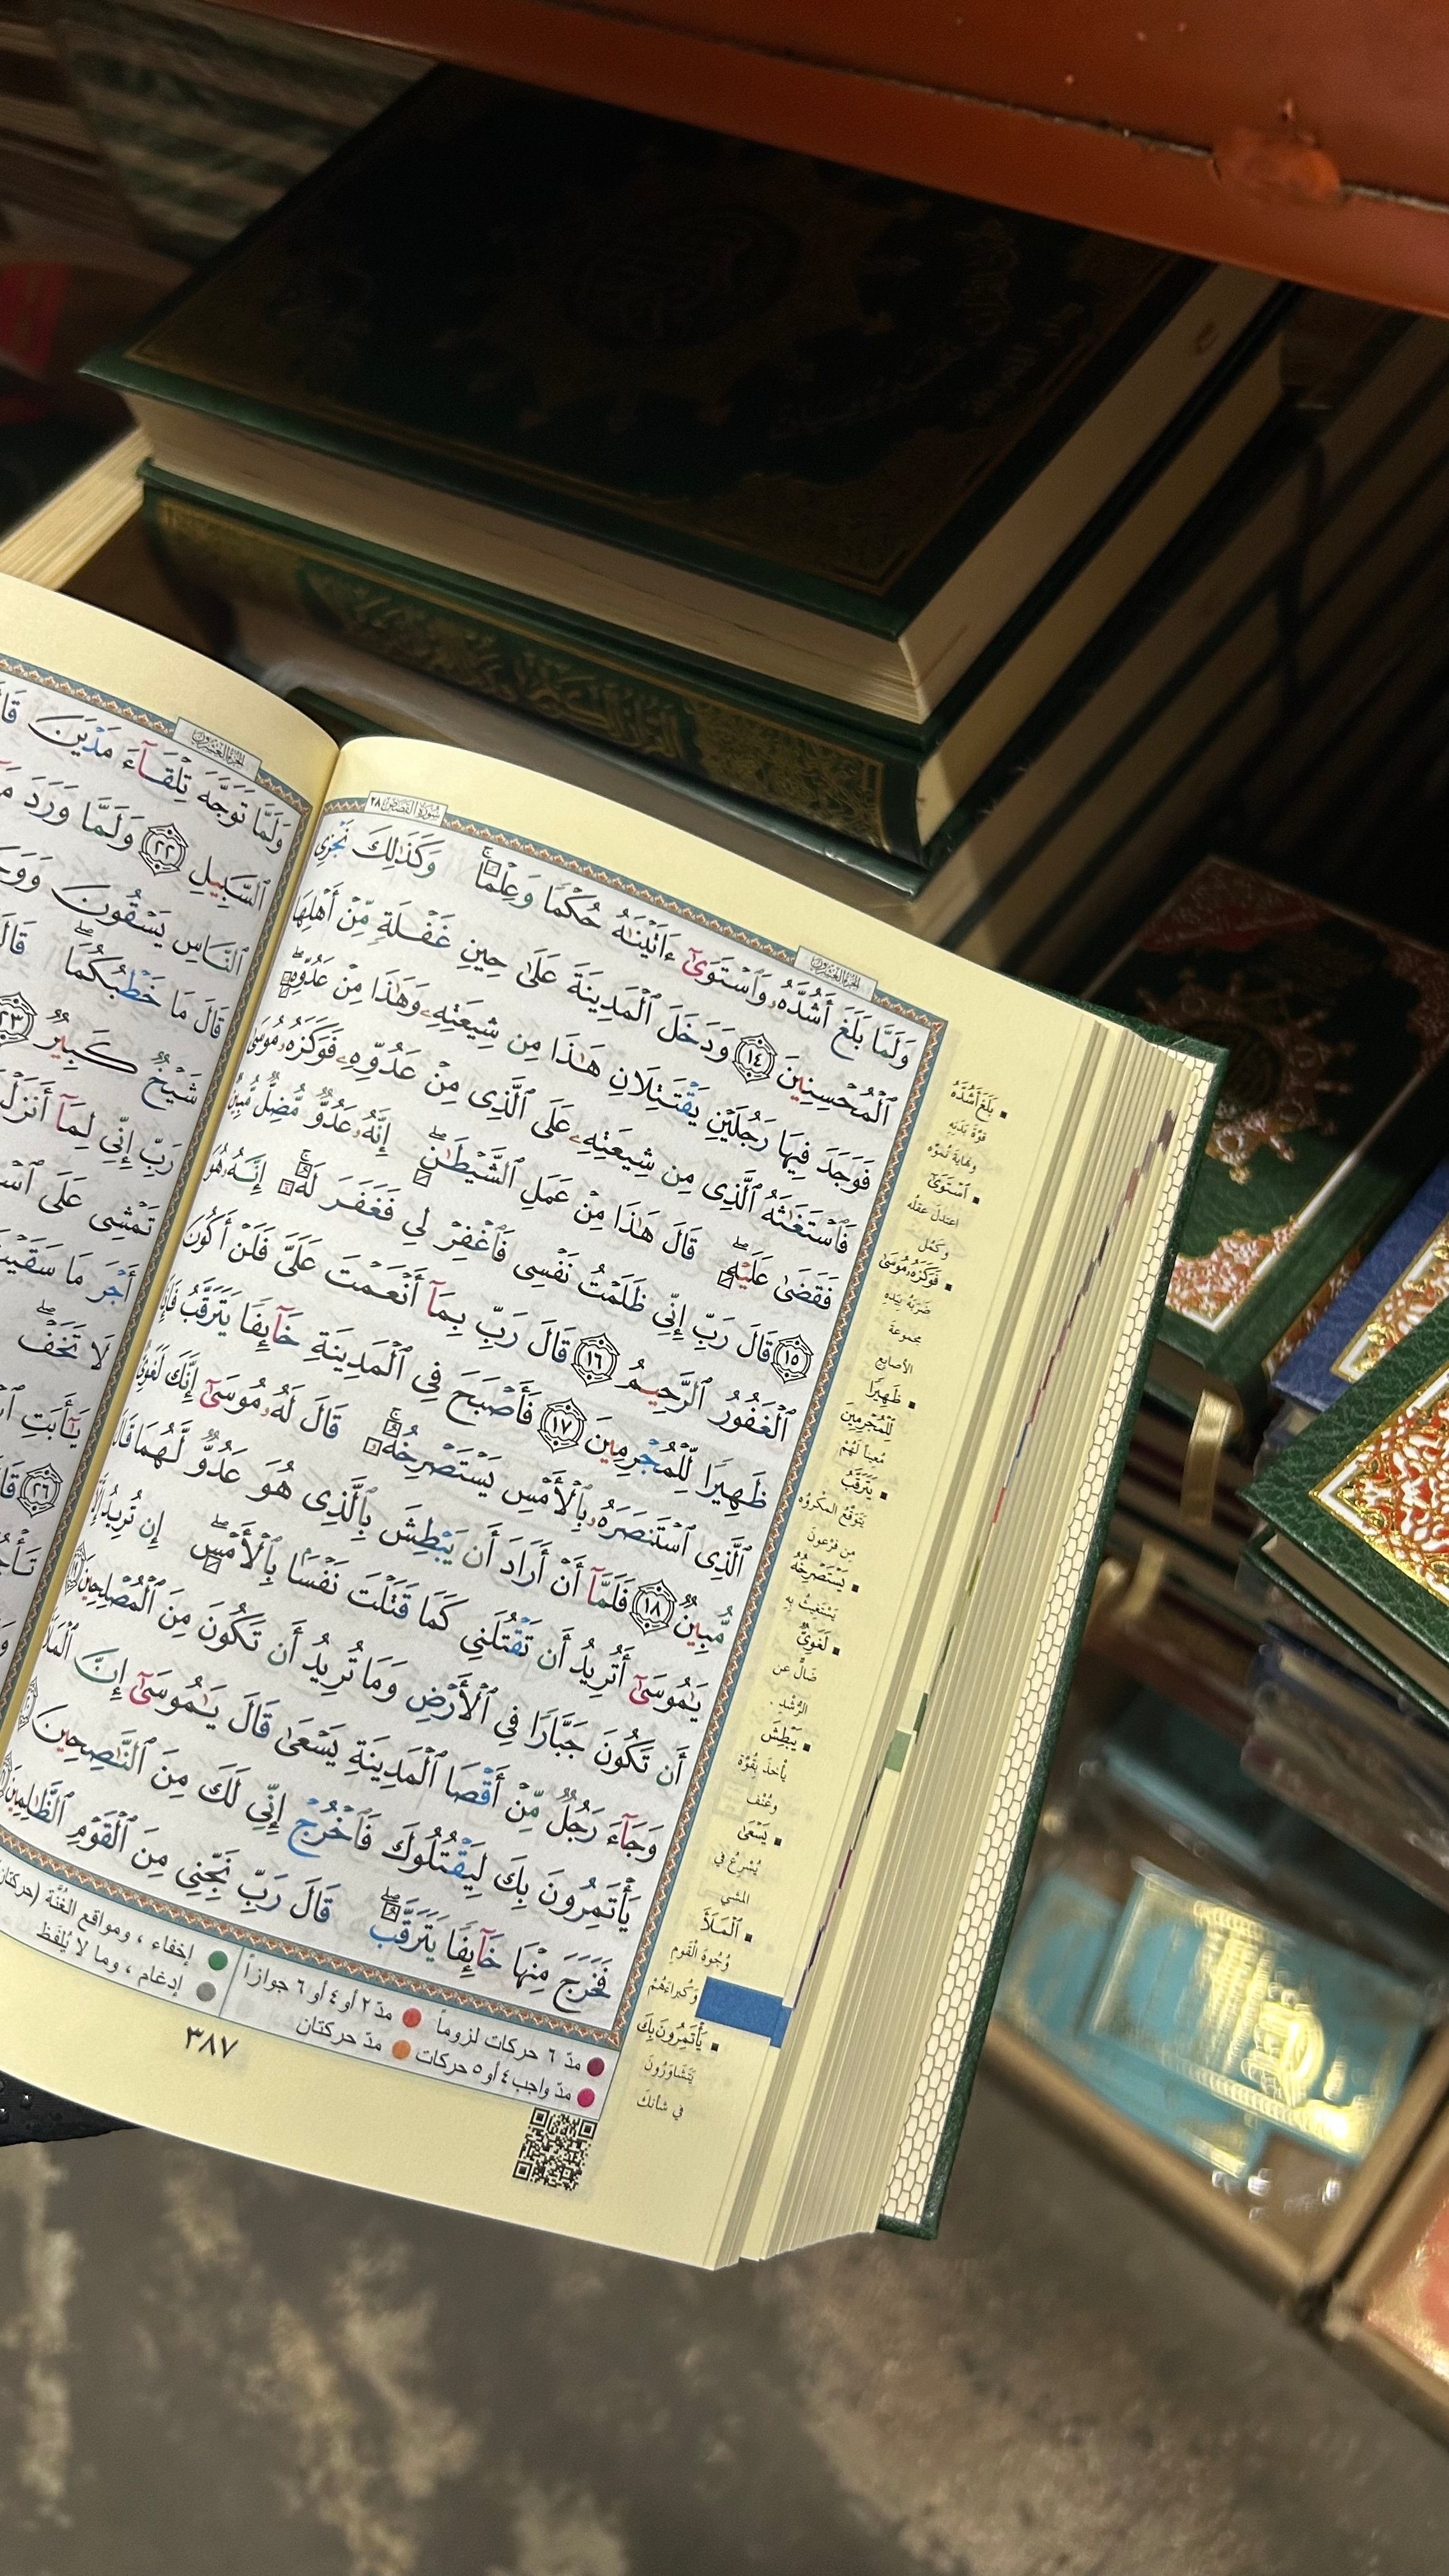 سُورَةُ القَصَصِ ٢٨
الجُزْءُ العِشْرُونَ
وَلَمَّا بَلَغَ أَشُدَّهُۥ وَٱسْتَوَىٰٓ ءَاتَيْنَٰهُ حُكْمًا وَعِلْمًا ۚ وَكَذَٰلِكَ نَجْزِى
ٱلْمُحْسِنِينَ ١٤ وَدَخَلَ ٱلْمَدِينَةَ عَلَىٰ حِينِ غَفْلَةٍ مِّنْ أَهْلِهَا
فَوَجَدَ فِيهَا رَجُلَيْنِ يَقْتَتِلَانِ هَٰذَا مِن شِيعَتِهِۦ وَهَٰذَا مِنْ عَدُوِّهِۦ ۖ
فَٱسْتَغَٰثَهُ ٱلَّذِى مِن شِيعَتِهِۦ عَلَى ٱلَّذِى مِنْ عَدُوِّهِۦ فَوَكَزَهُۥ مُوسَىٰ
فَقَضَىٰ عَلَيْهِ ۖ قَالَ هَٰذَا مِنْ عَمَلِ ٱلشَّيْطَٰنِ ۖ إِنَّهُۥ عَدُوٌّ مُّضِلٌّ مُّبِينٌ
١٥ قَالَ رَبِّ إِنِّى ظَلَمْتُ نَفْسِى فَٱغْفِرْ لِى فَغَفَرَ لَهُۥٓ ۚ إِنَّهُۥ هُوَ
ٱلْغَفُورُ ٱلرَّحِيمُ ١٦ قَالَ رَبِّ بِمَآ أَنْعَمْتَ عَلَىَّ فَلَنْ أَكُونَ
ظَهِيرًا لِّلْمُجْرِمِينَ ١٧ فَأَصْبَحَ فِى ٱلْمَدِينَةِ خَآئِفًا يَتَرَقَّبُ فَإِذَا
ٱلَّذِى ٱسْتَنصَرَهُۥ بِٱلْأَمْسِ يَسْتَصْرِخُهُۥ ۚ قَالَ لَهُۥ مُوسَىٰٓ إِنَّكَ لَغَوِىٌّ
مُّبِينٌ ١٨ فَلَمَّآ أَنْ أَرَادَ أَن يَبْطِشَ بِٱلَّذِى هُوَ عَدُوٌّ لَّهُمَا قَالَ
يَٰمُوسَىٰٓ أَتُرِيدُ أَن تَقْتُلَنِى كَمَا قَتَلْتَ نَفْسًۢا بِٱلْأَمْسِ ۖ إِن تُرِيدُ إِلَّآ
أَن تَكُونَ جَبَّارًا فِى ٱلْأَرْضِ وَمَا تُرِيدُ أَن تَكُونَ مِنَ ٱلْمُصْلِحِينَ ١٩
وَجَآءَ رَجُلٌ مِّنْ أَقْصَا ٱلْمَدِينَةِ يَسْعَىٰ قَالَ يَٰمُوسَىٰٓ إِنَّ ٱلْمَلَأَ
يَأْتَمِرُونَ بِكَ لِيَقْتُلُوكَ فَٱخْرُجْ إِنِّى لَكَ مِنَ ٱلنَّٰصِحِينَ
فَخَرَجَ مِنْهَا خَآئِفًا يَتَرَقَّبُ ۖ قَالَ رَبِّ نَجِّنِى مِنَ ٱلْقَوْمِ ٱلظَّٰلِمِينَ
بَلَغَ أَشُدَّهُ
قوة بدنه
ونهاية نموّه
ٱسْتَوَىٰ
اعتدل عقله
وكمُل
فَوَكَزَهُۥ مُوسَىٰ
ضربه بيده
مجموعة
الأصابع
ظَهِيرًا
لِّلْمُجْرِمِينَ
معينًا لهم
يَتَرَقَّبُ
يتوقع المكروه
من فرعون
يَسْتَصْرِخُهُۥ
يستغيث به
لَغَوِىٌّ
ضالٌّ عن
الرُّشد
يَبْطِشَ
يأخذ بقوّة
وعُنف
يَسْعَىٰ
يُسرع في
المشي
ٱلْمَلَأَ
وجوه القوم
وكبراءهم
يَأْتَمِرُونَ بِكَ
يتشاورون
في شأنك
مدّ ٦ حركات لزوماً مدّ ٢ أو ٤ أو ٦ جوازاً
مدّ واجب ٤ أو ٥ حركات مدّ حركتان
إخفاء ، ومواقع الغُنَّة (حركتان
إدغام ، وما لا يُلفَظ
٣٨٧
الجُزْءُ العِشْرُونَ
وَلَمَّا تَوَجَّهَ تِلْقَآءَ مَدْيَنَ
ٱلسَّبِيلِ ٢٢ وَلَمَّا وَرَدَ
ٱلنَّاسِ يَسْقُونَ
قَالَ مَا خَطْبُكُمَا ۖ
شَيْخٌ كَبِيرٌ ٢٣
رَبِّ إِنِّى لِمَآ
تَمْشِى عَلَى
أَجْرَ مَا سَقَيْتَ
لَا تَخَفْ ۖ
يَٰٓأَبَتِ
٢٦